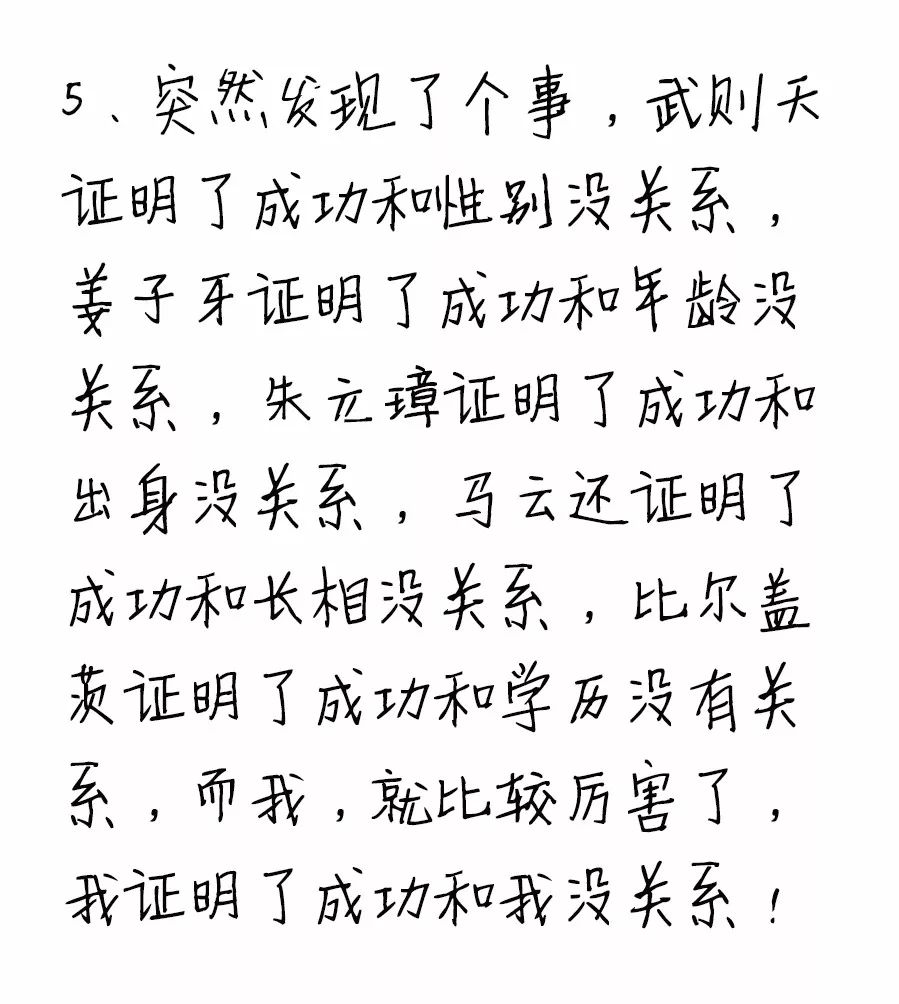 5、突然发现了个事，武则天
证明了成功和性别没关系，
姜子牙证明了成功和年龄没
关系，朱元璋证明了成功和
出身没关系，马云还证明了
成功和长相没关系，比尔盖
茨证明了成功和学历没有关
系，而我，就比较厉害了，
我证明了成功和我没关系！